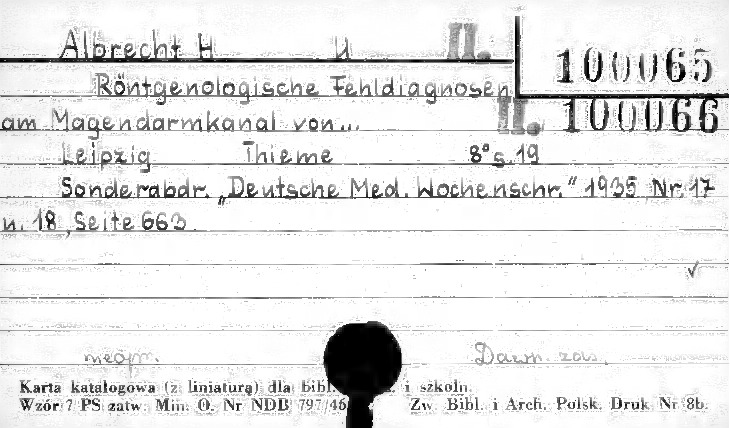 Albrecht H U II. 100065
Röntgenologische Fehldiagnosen
am Magendarmkanal von... II. 100066
Leipzig Thieme 8° s. 19
Sonderabdr. „Deutsche Med. Wochenschr." 1935 Nr. 17
u. 18, Seite 663
nieopr. Dawn. zas.
Karta katalogowa (z liniaturą) dla bibl. i szkoln.
Wzór 7 PS zatw. Min. O. Nr NDB 797/46 Zw. Bibl. i Arch. Polsk. Druk Nr 8b.